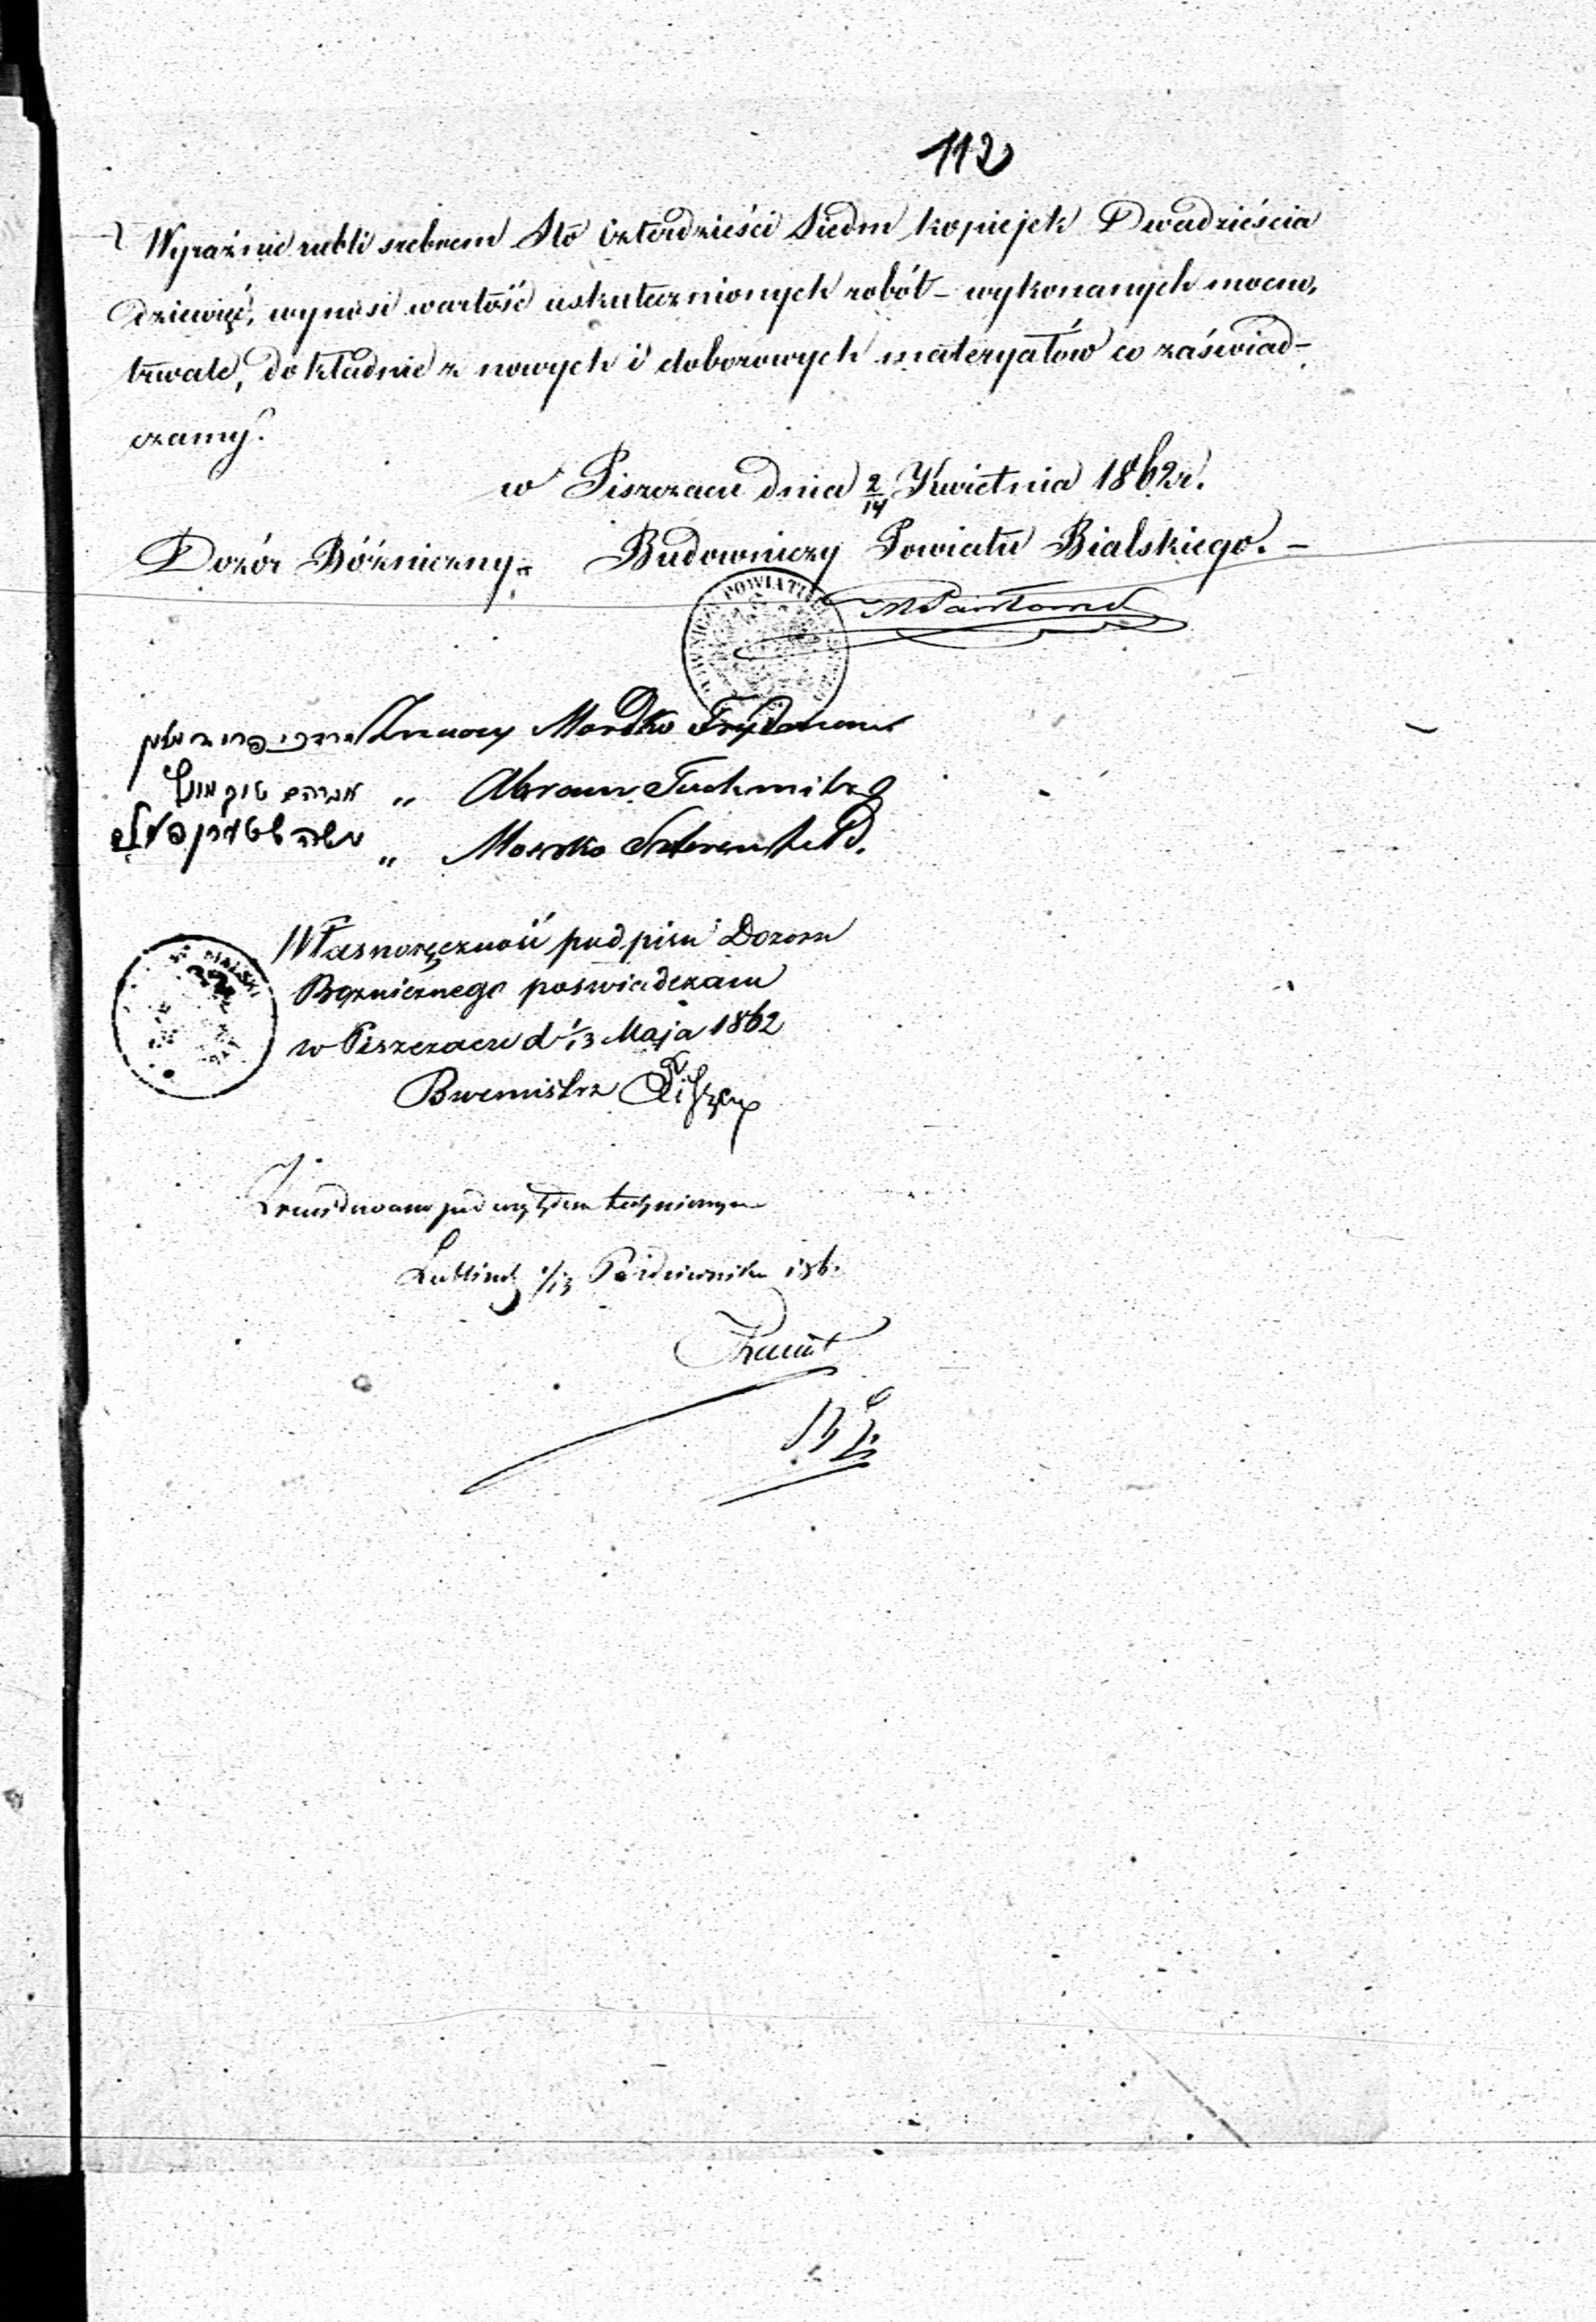 112
Wyraźnie rubli srebrem Sto czterdzieści Siedm kopiejek Dwadzieścia
dziewięć, wynosi wartość uskutecznionych robót – wykonanych mocno,
trwale, dokładnie z nowych i doborowych materyałów co zaświad–
czamy.
w Piszczacu dnia 2/14 Kwietnia 1862 r.
Dozór Bóżniczny. Budowniczy Powiatu Bialskiego. –
POWIATU
מרדכי פרידמאן Znaczy Mordko Frydman
אברהם " Abram
משה שטערןפעלד " Moszko Szternfeld.
Własnoręczność podpisu Dozoru
Bożnicznego poswiadczam
w Piszczacu d 1/13 Maja 1862
Burmistrz
Zrewidowano pod względem technicznym
Lublin d 1/13 Października 186